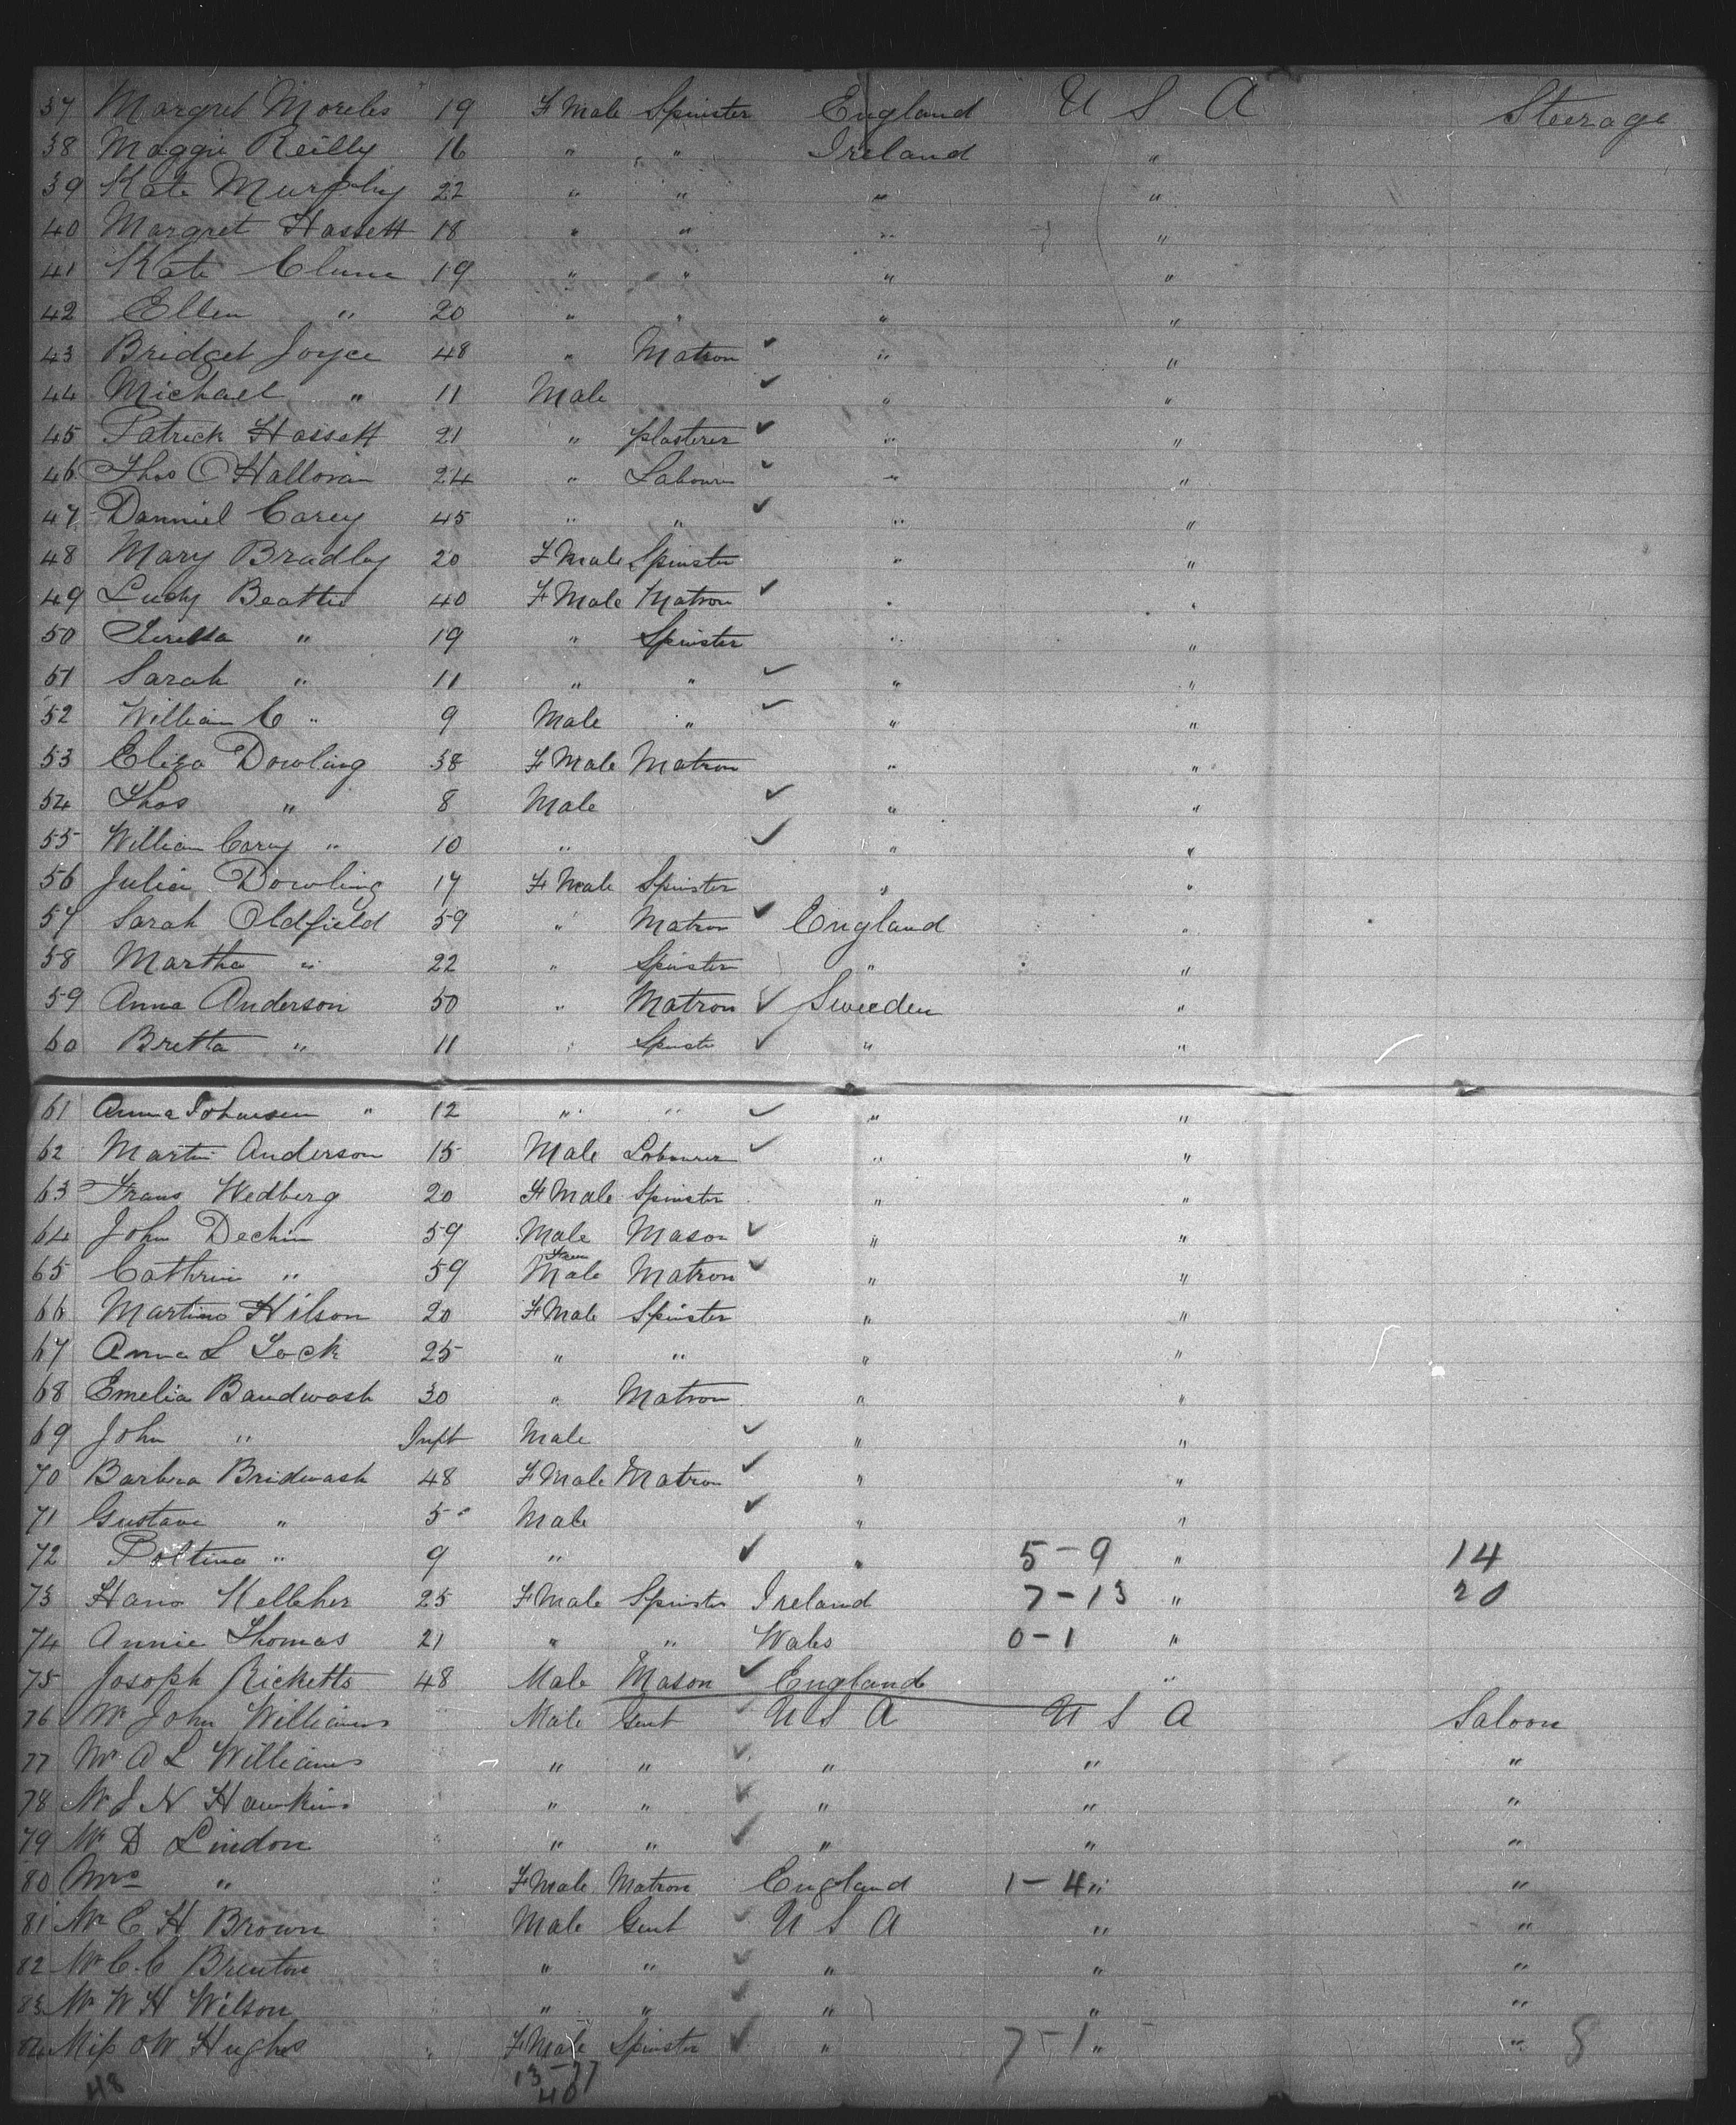 37 Margret Moreles 19 F Male Spinster England U S A Steerage
38 Maggie Reilly 16 " " Ireland "
39 Kate Murphy 22 " " " "
40 Margret Hassett 18 " " " "
41 Kate Clune 19 " " " "
42 Ellen " 20 " " " "
43 Bridget Joyce 48 " Matron ✓ " "
44 Michael " 11 Male ✓ " "
45 Patrick Hassett 21 " plasterer ✓ " "
46 Thos O Halloran 24 " Labourer ✓ " "
47 Danniel Carey 45 " " ✓ " "
48 Mary Bradley 20 F Male Spinster " "
49 Lucy Beattie 40 F Male Matron ✓ " "
50 " 19 " Spinster " "
51 Sarah " 11 " " ✓ " "
52 William C " 9 Male " ✓ " "
53 Eliza Dowling 38 F Male Matron " "
54 Thos " 8 Male ✓ " "
55 William Carey " 10 " ✓ " "
56 Julia Dowling 17 F Male Spinster " "
57 Sarah Oldfield 59 " Matron ✓ England "
58 Martha " 22 " Spinster " "
59 Anna Anderson 50 " Matron ✓ Sweeden "
60 Bretta " 11 " Spinste ✓ " "
61 Anna Johansen " 12 " " ✓ " "
62 Martin Anderson 15 Male Labourer ✓ " "
63 Frans Wedberg 20 F Male Spinster " "
64 John Dechin 59 Male Mason ✓ " "
65 Cathrin " 59 Male Matron ✓ " "
66 Hilson 20 F Male Spinster " "
67 Anna L Lock 25 " " " "
68 Emelia Bandwash 30 " Matron " "
69 John " Inft Male ✓ " "
70 Barbra Bridwash 48 F Male Matron ✓ " "
71 Gustave " 5 Male ✓ " "
72 Poltina " 9 " ✓ " 5-9 " 14
73 Hano Kelleher 25 F Male Spinster Ireland 7-13 " 20
74 Annie Thomas 21 " " Wales 0-1 "
75 Josoph Ricketts 48 Male Mason ✓ England "
76 Mr John Williams " Male Gent ✓ U S A U S A Saloon
77 Mr A L Williams " " " ✓ " " "
78 Mr J N Hawkins " " " ✓ " " "
79 Mr D Lindon " " " ✓ " " "
80 Mrs " " F Male Matron England 1-4 " "
81 Mr C H Brown " Male Gent ✓ U S A " "
82 Mr C. C Brenton " " " ✓ " " "
83 Mr W H Wilson " " " ✓ " " "
84 Miss O W Hughs " F Male Spinster ✓ " 7-1 " " 8
48 13-27
40